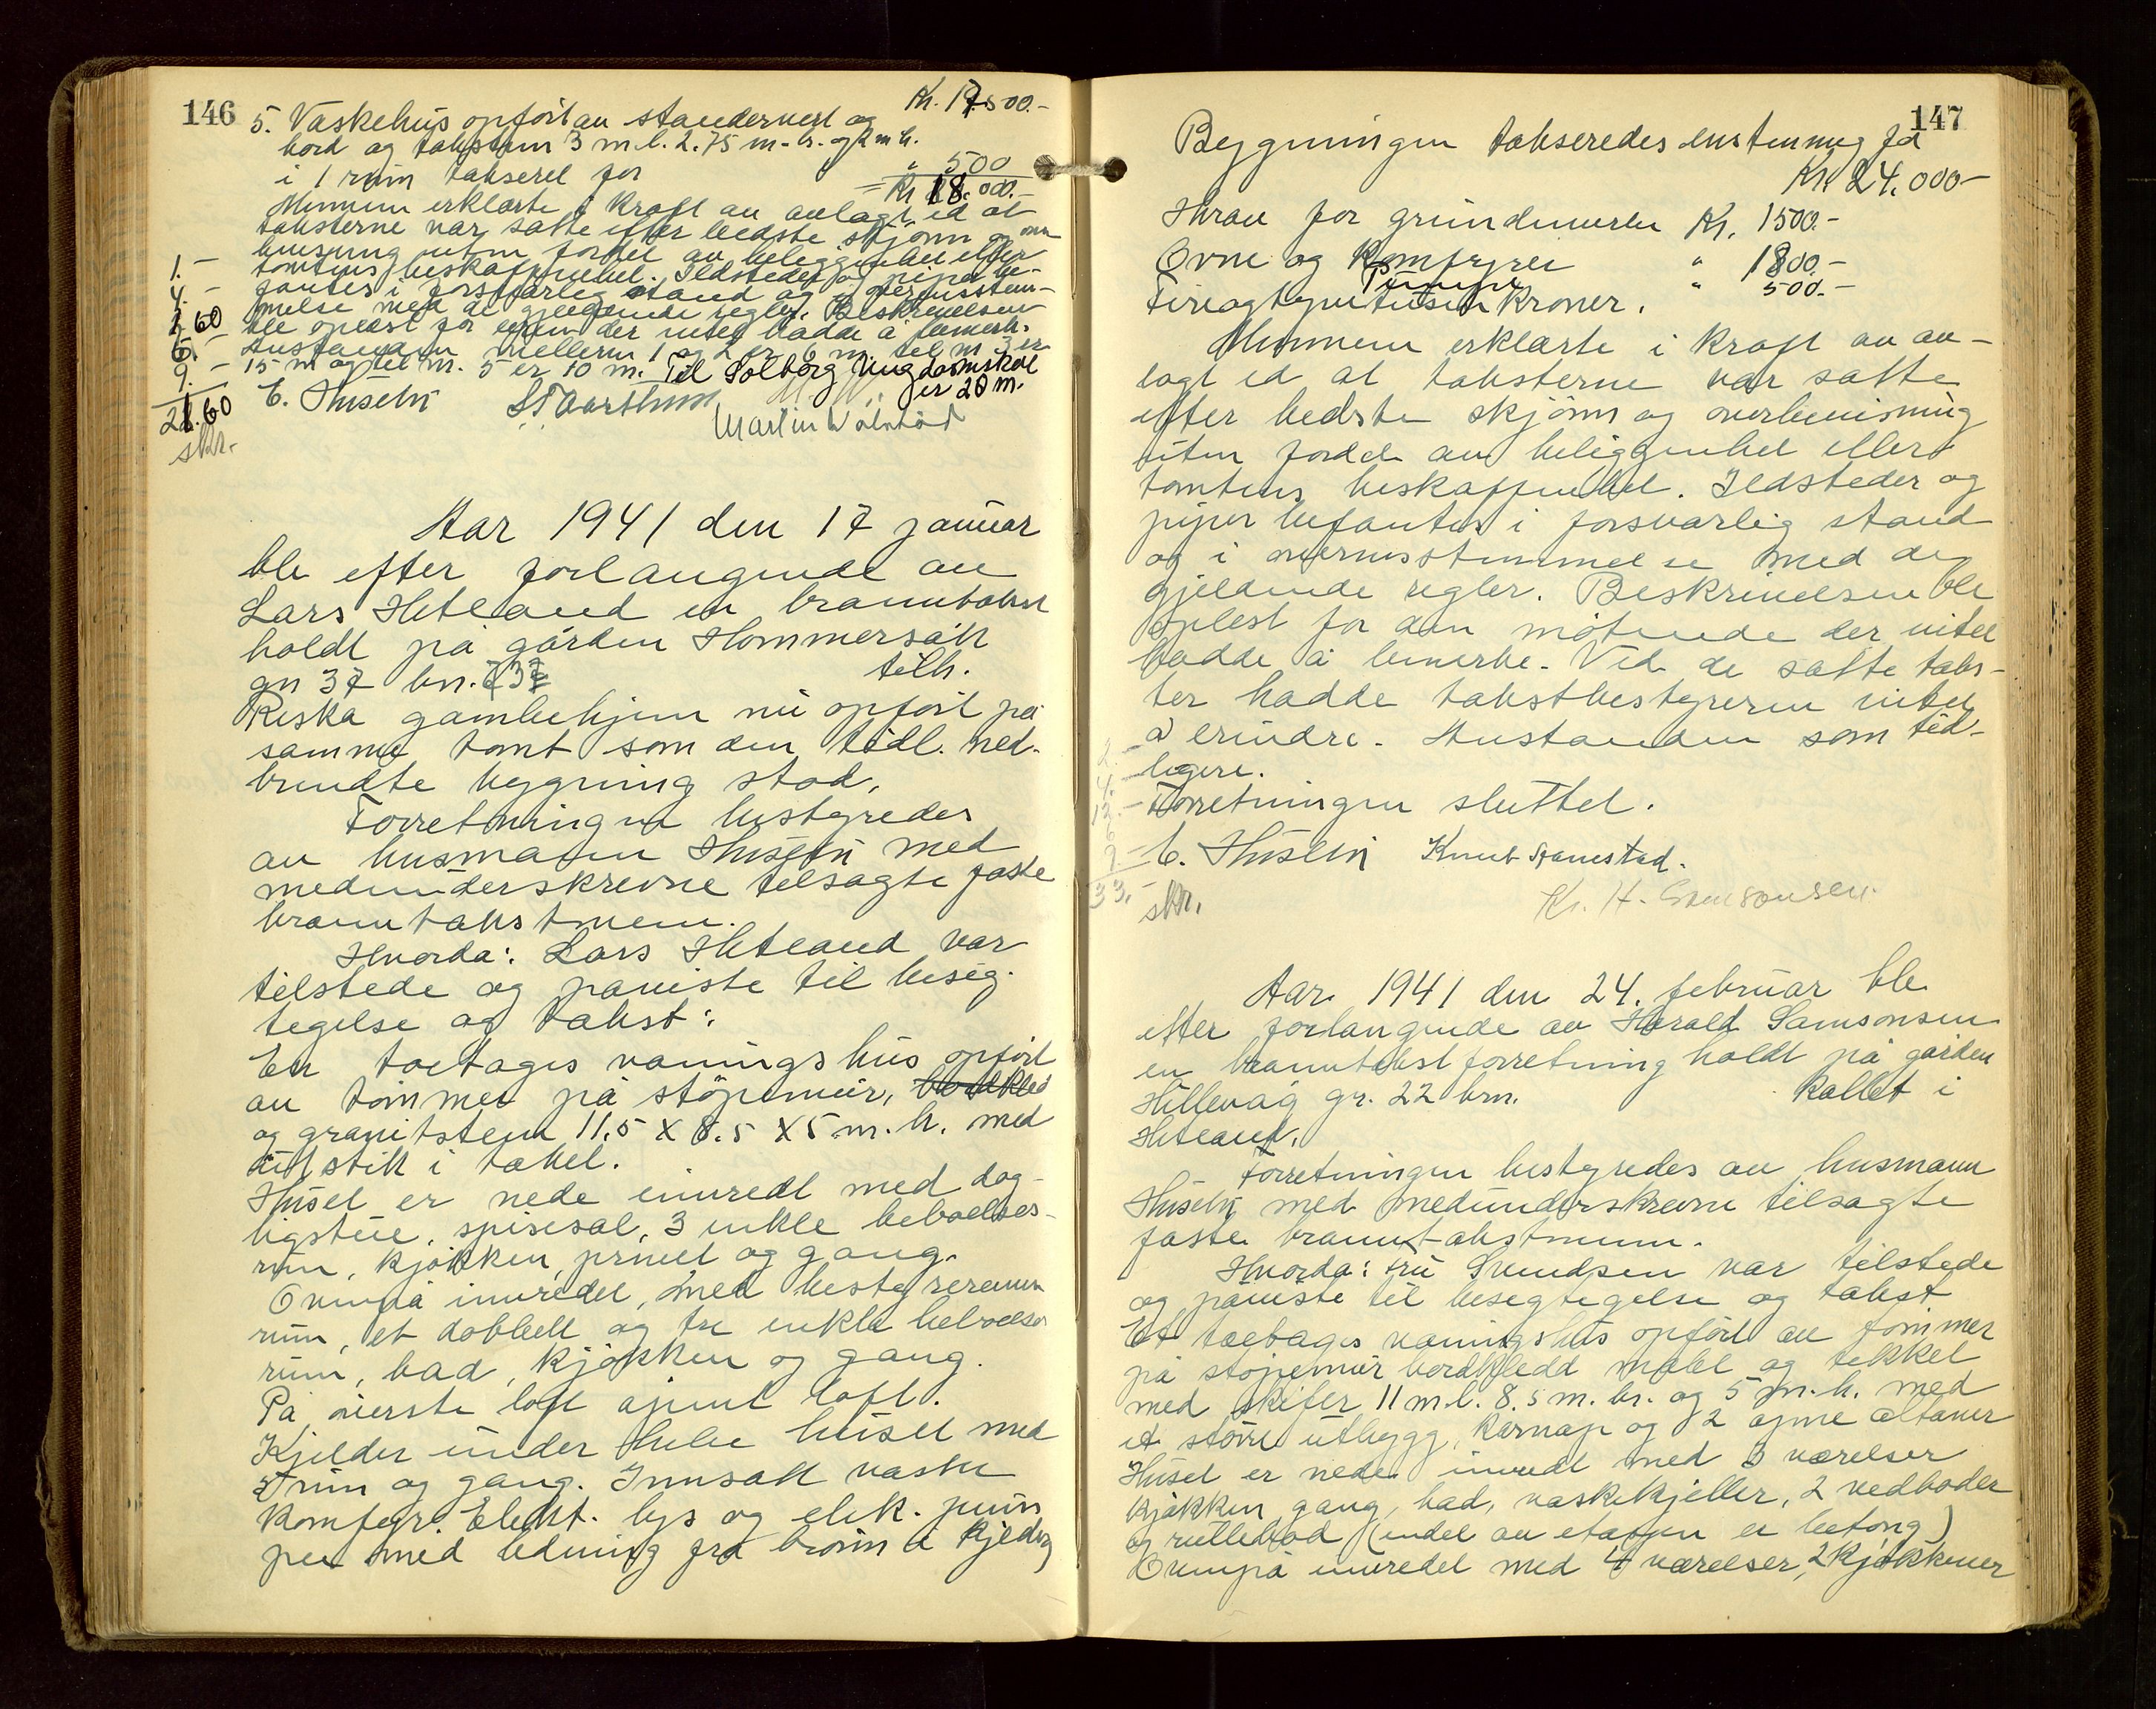 146
Kr. 17.500.-
5. Vaskehus opført av standerverk og
bord og takstein 3 m.l. 2.75 m. br. og 2 m h.
i 1 rum taksert for " 500
= Kr 18.000.-
Mennene erklærte i kraft av avlagt ed at
taksterne var satte efter bedste skjønn og over
bevisning uten fordel av beliggenhet eller
1. - tomtens beskaffenhet. Ildsteder og piper be-
4. - fantes i forsvarlig stand og i overensstem-
melse med de gjeldende regler. Beskrivelsen
60 ble oplest for eieren der intet hadde å bemerk.
6. - Avstanden mellem 1 og 2 er 6 m. til nr 3 er
9. - 15 m og til nr. 5 er 10 m. Til Solborg Ungdomskole
er 20 m.
21.60 E. Huseby
Martin
skr.
Aar 1941 den 17 januar
ble efter forlangende av
Lars Hetland en branntakst
holdt på gården Hommersåk
gn 37 bn. tilh.
Riska gamlehjem nu opført på
samme tomt som den tidl. ned-
brendte bygning stod.
Forretningen bestyredes
av lensmann Huseby med
medunderskrevne tilsagte faste
branntakstmenn.
Hvorda: Lars Hetland var
tilstede og påviste til besig-
tigelse og takst:
Et toetages vaningshus opført
av tømmer på støpemur, bordkled
og granitstein 11.5 x 8.5 x 5 m. h. med
utstikk i taket.
Huset er nede innredt med dag-
ligstue, spisesal, 3 enkle beboelses-
rum, kjøkken, privet og gang.
Ovenpå innredet med bestyrerinnen
rum, et dobbelt og tre enkle beboelses
rum, bad, kjøkken og gang.
På øverste loft åpent loft.
Kjelder under hele huset med
rum og gang. Innsatt vaske
komfyr. Elekt. lys og elek. pum
pe med ledning fra brønn i kjelder
147
Bygningen takseredes enstemmig for
Kr. 24.000-
Herav for grundmuren Kr. 1500.-
Ovne og Komfyrer " 1800.-
Pumpe " 500.-
Fireogtyvetusen Kroner.
Mennene erklærte i kraft av av-
lagt ed at taksterne var satte
efter bedste skjønn og overbevisning
uten fordel av beliggenhet eller
tomtens beskaffenhet. Ildsteder og
piper befantes i forsvarlig stand
og i overensstemmelse med de
gjeldende regler. Beskrivelsen ble
oplest for den møtende der intet
hadde å bemerke. Ved de satte taks-
ter hadde takstbestyreren intet
å erindre. Avstanden som tid-
2. -
ligere.
4. -
Forretningen sluttet.
12. -
6
9. - E. Huseby Knut Stanestad.
33. - Kr. H. Samsonsen.
skr.
Aar 1941 den 24. februar ble
efter forlangende av Harald Samsonsen
en branntakstforretning holdt på gården
Hillevåg gr. 22 brn. kallet i
Hetland.
Forretningen bestyredes av lensmann
Huseby med medunderskrevne tilsagte
faste branntakstmenn.
Hvorda: fru Svendsen var tilstede
og påviste til besigtigelse og takst
Et toetages vaningshus opført av tømmer
på støpemur bordkledd malet og tekket
med skifer 11 m.l. 8.5 m. br. og 5 m. h. med
et større utbygg, karnap og 2 åpne altaner
Huset er nede innredt med 3 værelser
kjøkken, gang, bad, vaskekjeller, 2 vedboder
og rullebod (endel av etagen er betong)
Ovenpå innredet med 4 værelser, 2 kjøkkener